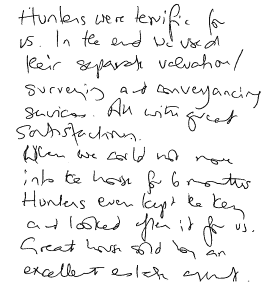 Hunters were terrific for
us. In the end we used
their separate valuation/
surveying and conveyancing
services. All with great
satisfaction.
When we could not move
into the house for 6 months
Hunters even kept the key
and looked after it for us.
Great house sold by an
excellent estate agent.